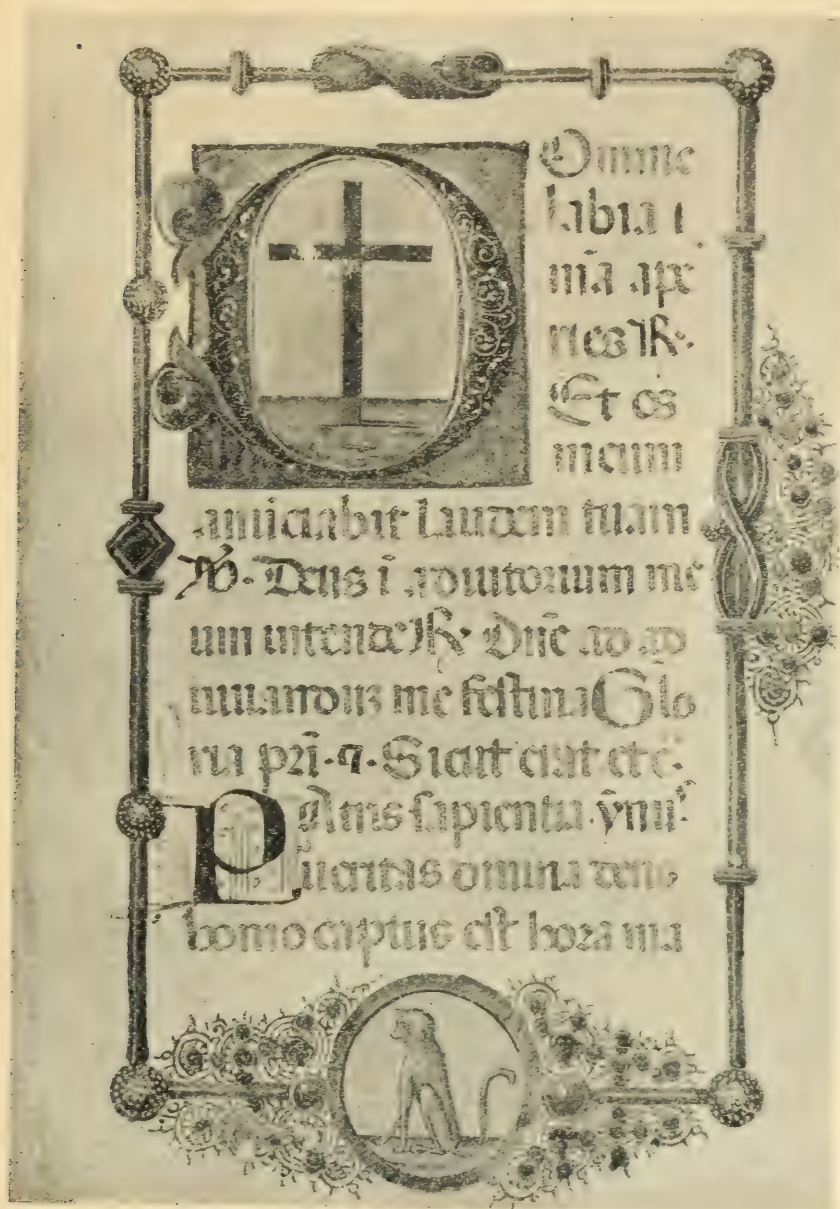 Omine
labia
mīa ape
ries ℟.
Et os
meum
annūciabit laudem tuam
℣. Deus ī adiutorium me
um intende ℟. Dn̄e ad ad
iuuandū me festina Glo
ria pr̄i. ⁊. Sicut erat et ē.
PAtris sapientia
ueritas diuina deus
homo captus est hora ma